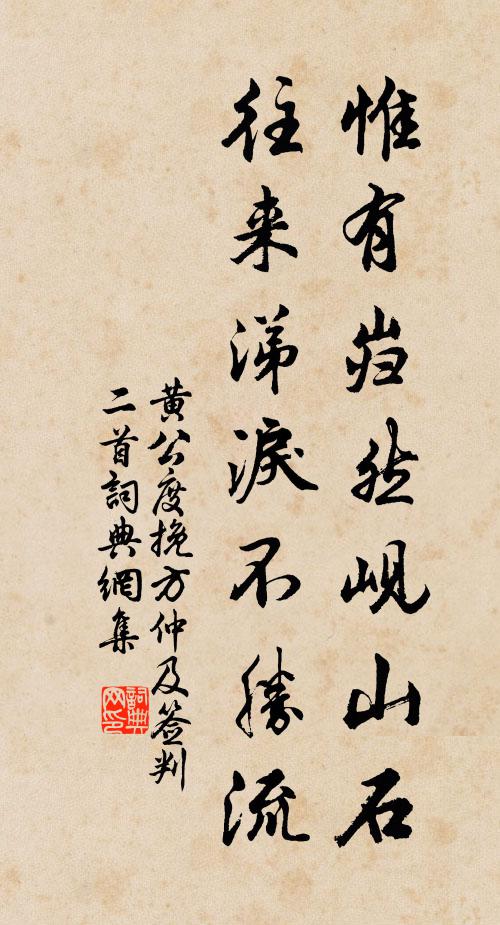 惟有岿然岘山石
往来涕淚不勝流
黄公度挽方仲及签判
二首詞典網集
詞典
网印